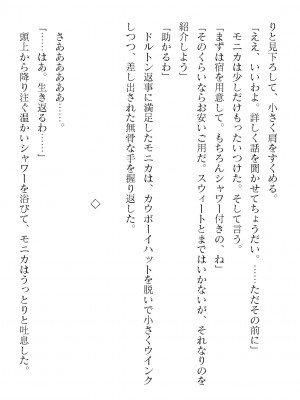 りと見下ろして、小さく肩をすくめる。
「ええ、いいわよ。詳しく話を聞かせてちょうだい。……ただその前に」
モニカは少しだけもったいつけた。そして言う。
「まずは宿を用意して。もちろんシャワー付きの、ね」
「そのくらいならお安いご用だ。スウィートとまではいかないが、それなりのを
紹介しよう」
「助かるわ」
ドルトン返事に満足したモニカは、カウボーイハットを脱いで小さくウインク
しつつ、差し出された無骨な手を握り返した。
◇
さあああああ……。
「……はあ。生き返るわ……」
頭上から降り注ぐ温かいシャワーを浴びて、モニカはうっとりと吐息した。